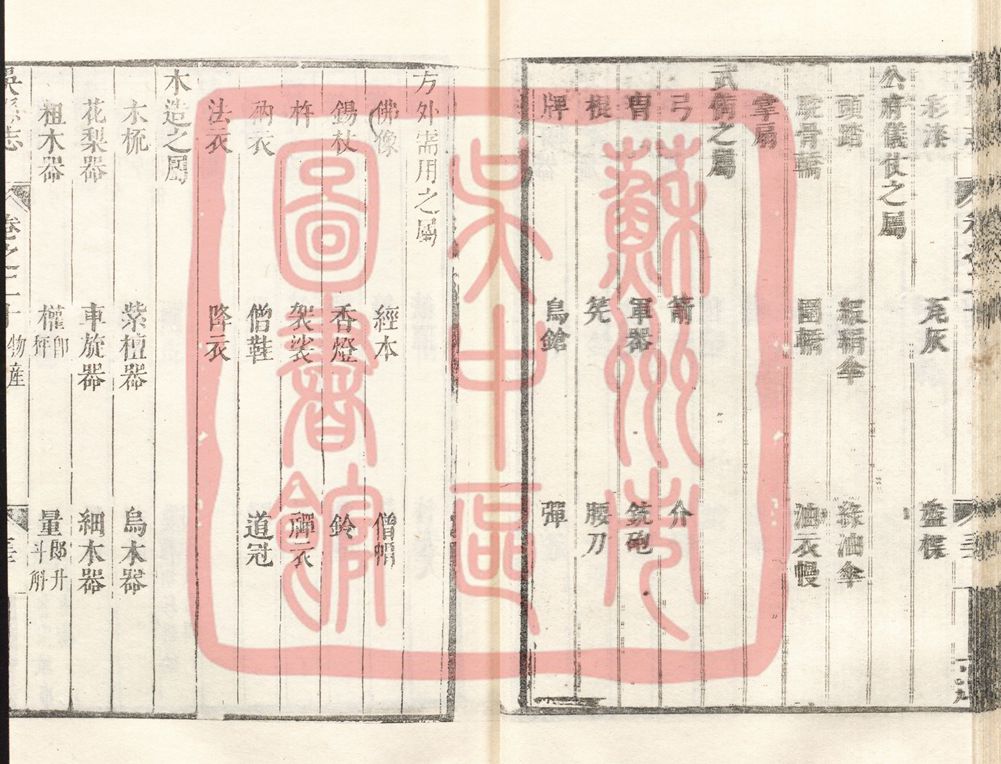 彩漆 瓦灰 盔樏
公府儀仗之屬
頭踏 綠油傘
圍轎 油衣幔
掌扇
武備之屬
弓 箭 介
冑 軍器 銃砲
棍 筅 腰刀
牌 鳥鎗 彈
方外需用之屬
佛像 經本 僧帽
錫杖 香燈 鈴
杵 袈裟 禪衣
衲衣 僧鞋 道冠
法衣 降衣
木造之屬
木梳 紫檀器 烏木器
花梨器 車旋器 細木器
柤木器 權即秤 量即升斗斛
吳縣志 卷之二十 物產
蘇州市
吳中區
圖書館